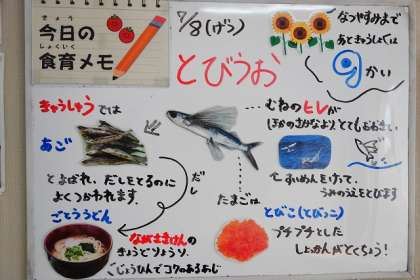 きょう
今日の
しょくいく
食育メモ
7/8(げつ)
とびうお
なつやすみまで
あときゅうしょくは
9かい
きゅうしゅうでは
あご
とよばれ、だしをとるのに
よくつかわれます。
ごとううどん
ながさきけんの
きょうどりょうり。
ごじょうひんでコクのあるあじ
だし
…むねのヒレが
ほかのさかなより、とてもおおきい。
すいめんをけって、
うみのうえをとびます
たまごは
とびこ(とびっこ)
プチプチとした
しょっかんがとくちょう!